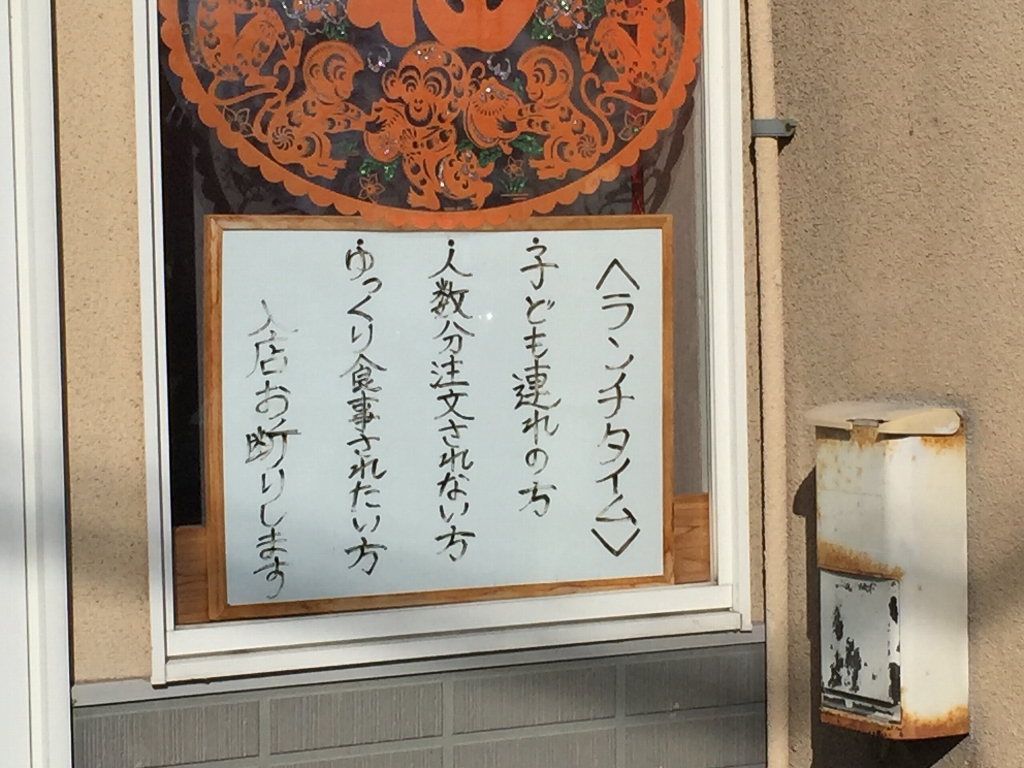 〈ランチタイム〉
子ども連れの方
人数分注文されない方
ゆっくり食事されたい方
入店お断りします